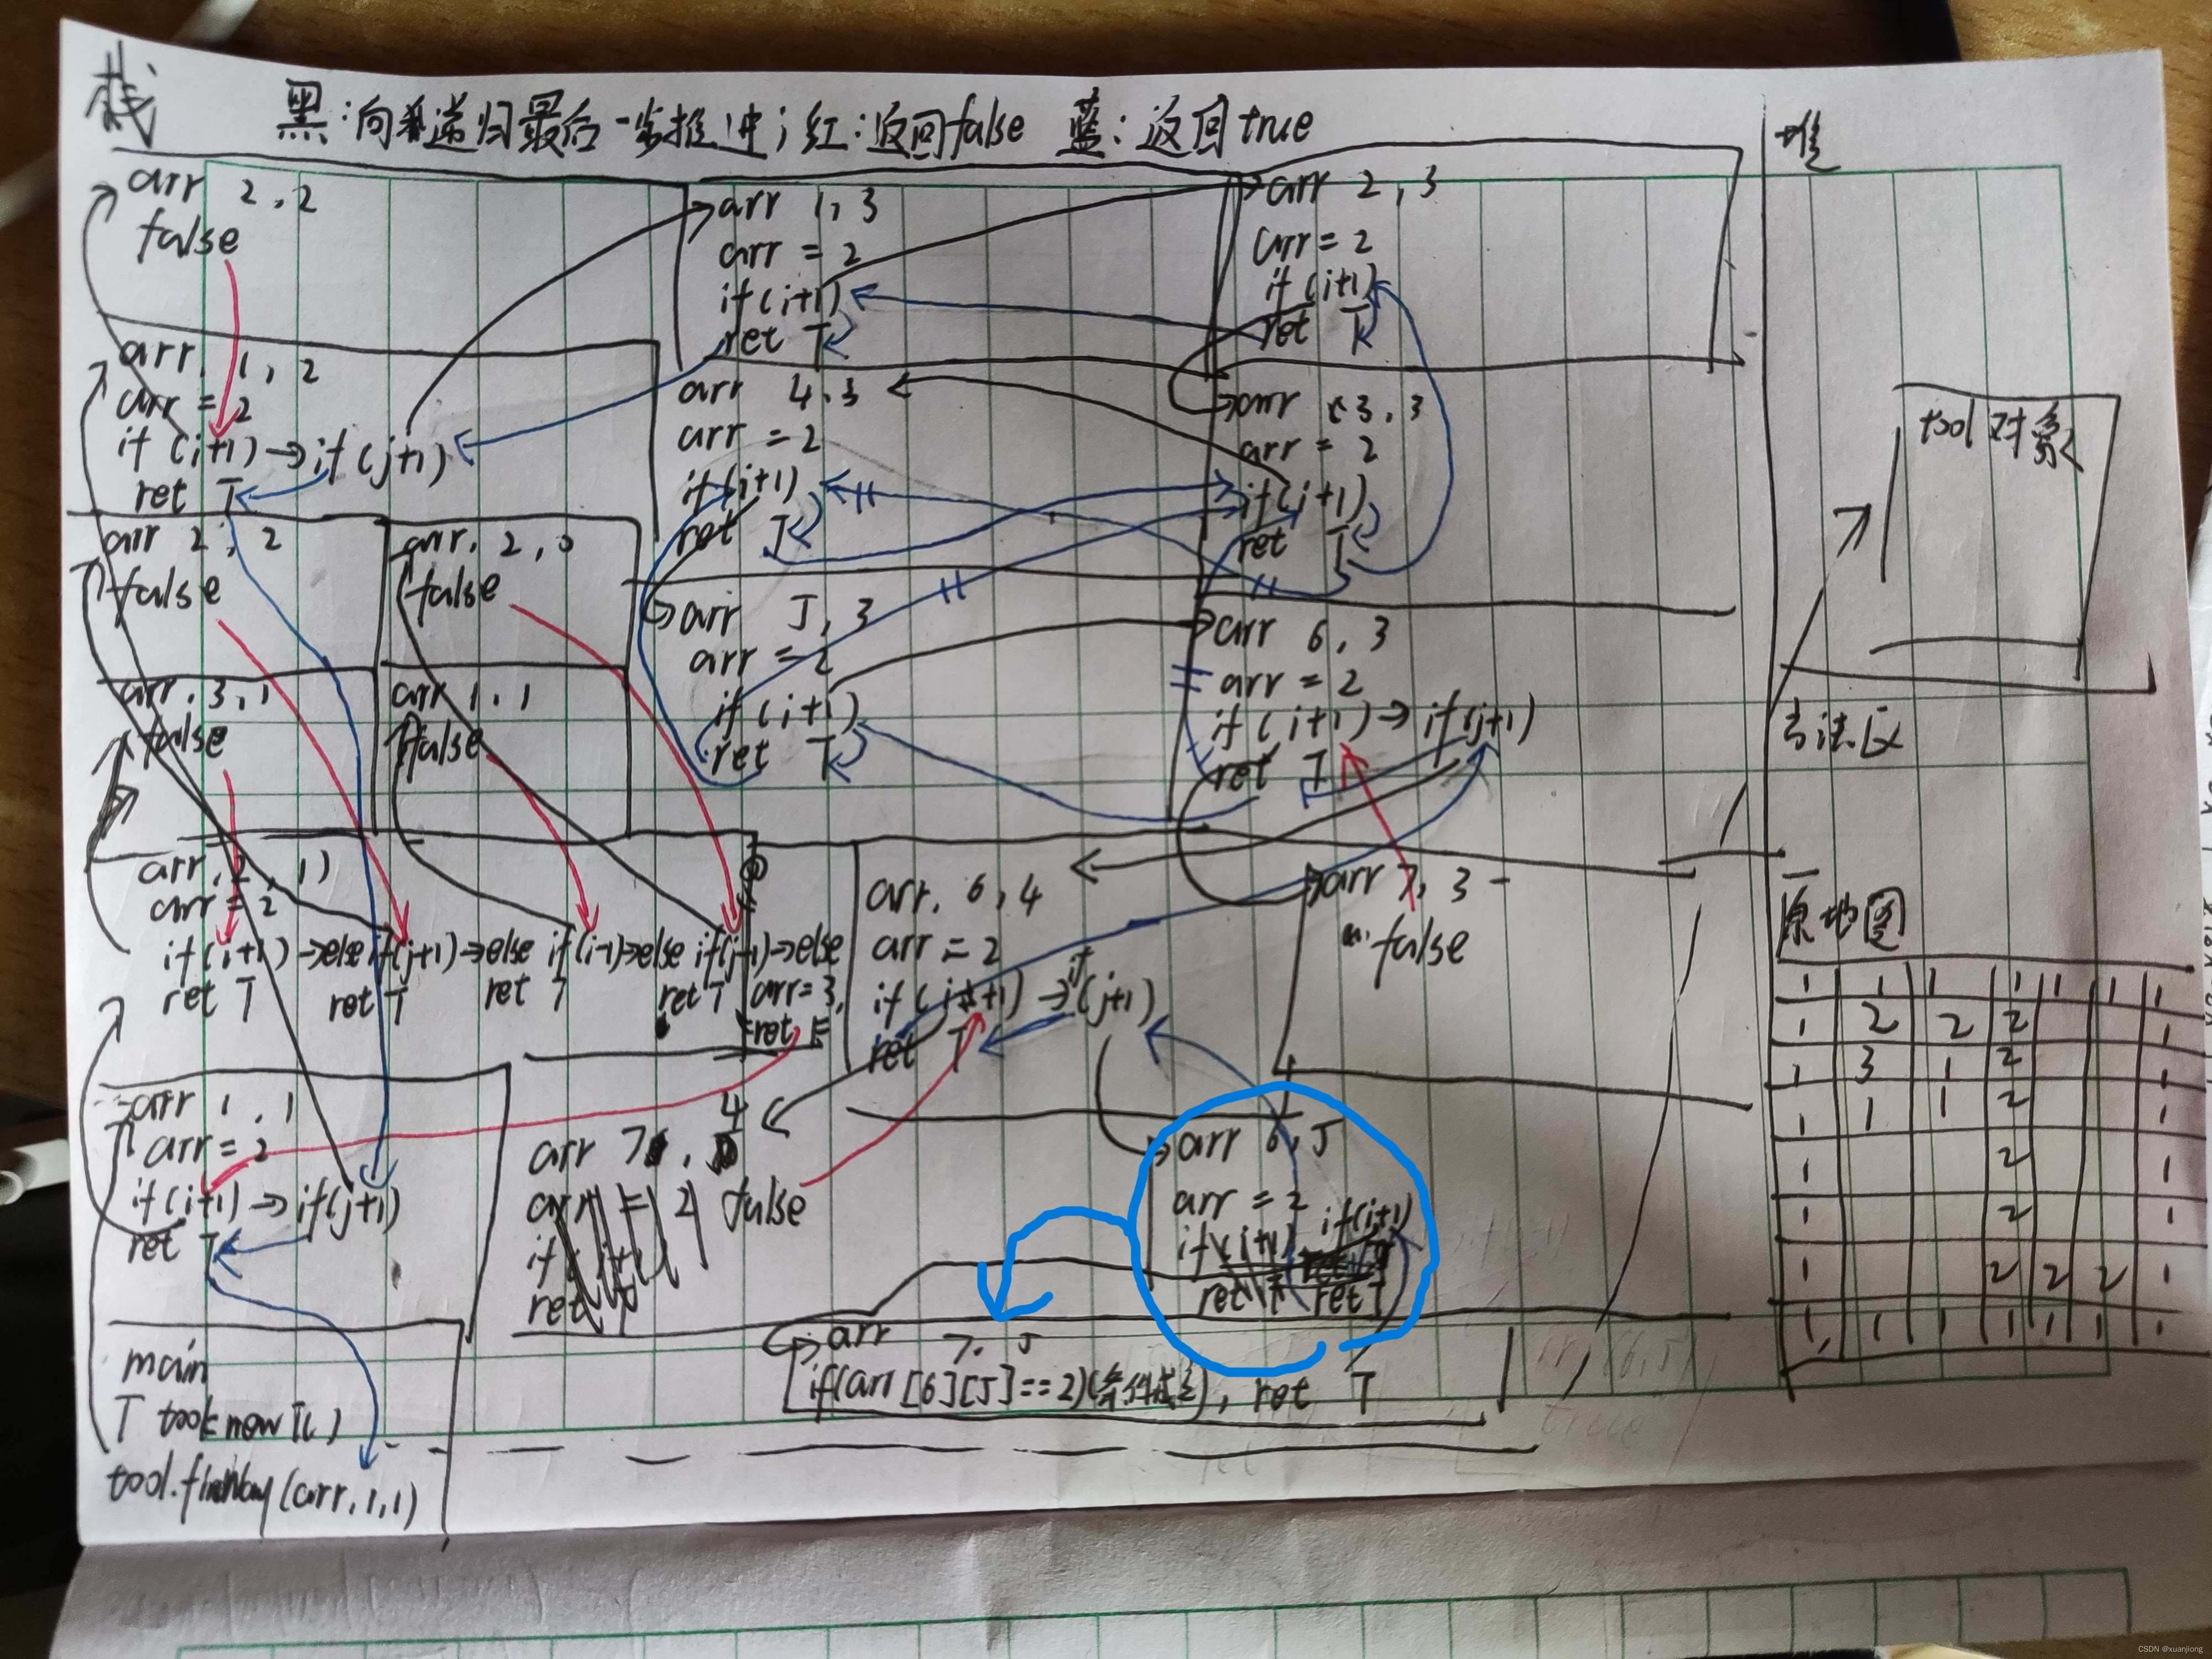 栈
黑:向递归最后一步推进;红:返回false 蓝:返回true
堆
arr 2,2
false
arr 1,3
arr = 2
if(i+1)
ret T
arr 2,3
arr = 2
if(i+1)
ret T
arr, 1,2
arr = 2
if(i+1)→if(j+1)
ret T
arr 4,3
arr = 2
if(i+1)
ret T
arr 3,3
arr = 2
if(i+1)
ret T
tool对象
arr 2,2
false
arr, 2,0
false
arr 5,3
arr = 2
if(i+1)
ret T
arr 6,3
arr = 2
if(i+1)→if(j+1)
ret T
arr, 3,1
false
arr 1,1
false
方法区
arr, 2,1)
arr = 2
if(i+1)→else if(j+1)→else if(i-1)→else if(j-1)→else
ret T ret T ret T ret T arr=3,
ret F
arr, 6,4
arr = 2
if(i+1)→if(j+1)
ret T
arr 7,3
false
原地图
1 1 1 1 1 1 1
1 2 2 2 1
1 3 1 2 1
1 1 1 2 1
1 2 1
1 2 1
1 2 2 2 1
1 1 1 1 1 1 1
arr 1,1
arr = 2
if(i+1)→if(j+1)
ret T
arr 7,4
false
arr 6,5
arr = 2
if(i+1)
ret T
main
T tool=new T()
tool.findWay(arr,1,1)
arr 7,5
if(arr[6][5]==2)(条件成立), ret T
CSDN @xuanjiong